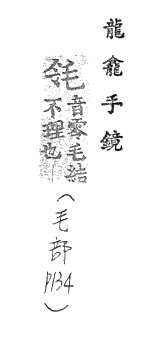 龍龕手鏡
㲆
音零毛結
不理也
(毛部P134)